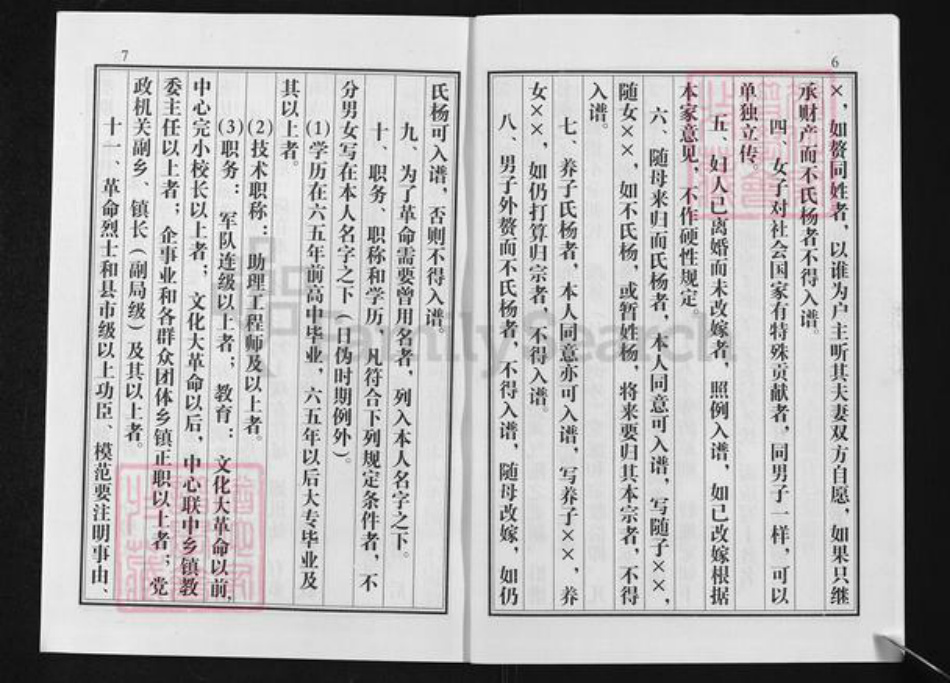 6
×，如赘同姓者，以谁为户主听其夫妻双方自愿，如果只继
承财产而不氏杨者不得入谱。
四、女子对社会国家有特殊贡献者，同男子一样，可以
单独立传。
五、妇人已离婚而未改嫁者，照例入谱，如已改嫁根据
本家意见，不作硬性规定。
六、随母来归而氏杨者，本人同意可入谱，写随子××，
随女××，如不氏杨，或暂姓杨，将来要归其本宗者，不得
入谱。
七、养子氏杨者，本人同意亦可入谱，写养子××，养
女××，如仍打算归宗者，不得入谱。
八、男子外赘而不氏杨者，不得入谱，随母改嫁，如仍
7
氏杨可入谱，否则不得入谱。
九、为了革命需要曾用名者，列入本人名字之下。
十、职务、职称和学历，凡符合下列规定条件者，不
分男女写在本人名字之下（日伪时期例外）。
(1)学历在六五年前高中毕业，六五年以后大专毕业及
其以上者。
(2)技术职称：助理工程师及以上者。
(3)职务：军队连级以上者；教育：文化大革命以前，
中心完小校长以上者；文化大革命以后，中心联中乡镇教
委主任以上者；企事业和各群众团体乡镇正职以上者；党
政机关副乡、镇长（副局级）及其以上者。
十一、革命烈士和县市级以上功臣、模范要注明事由、
FamilySearch